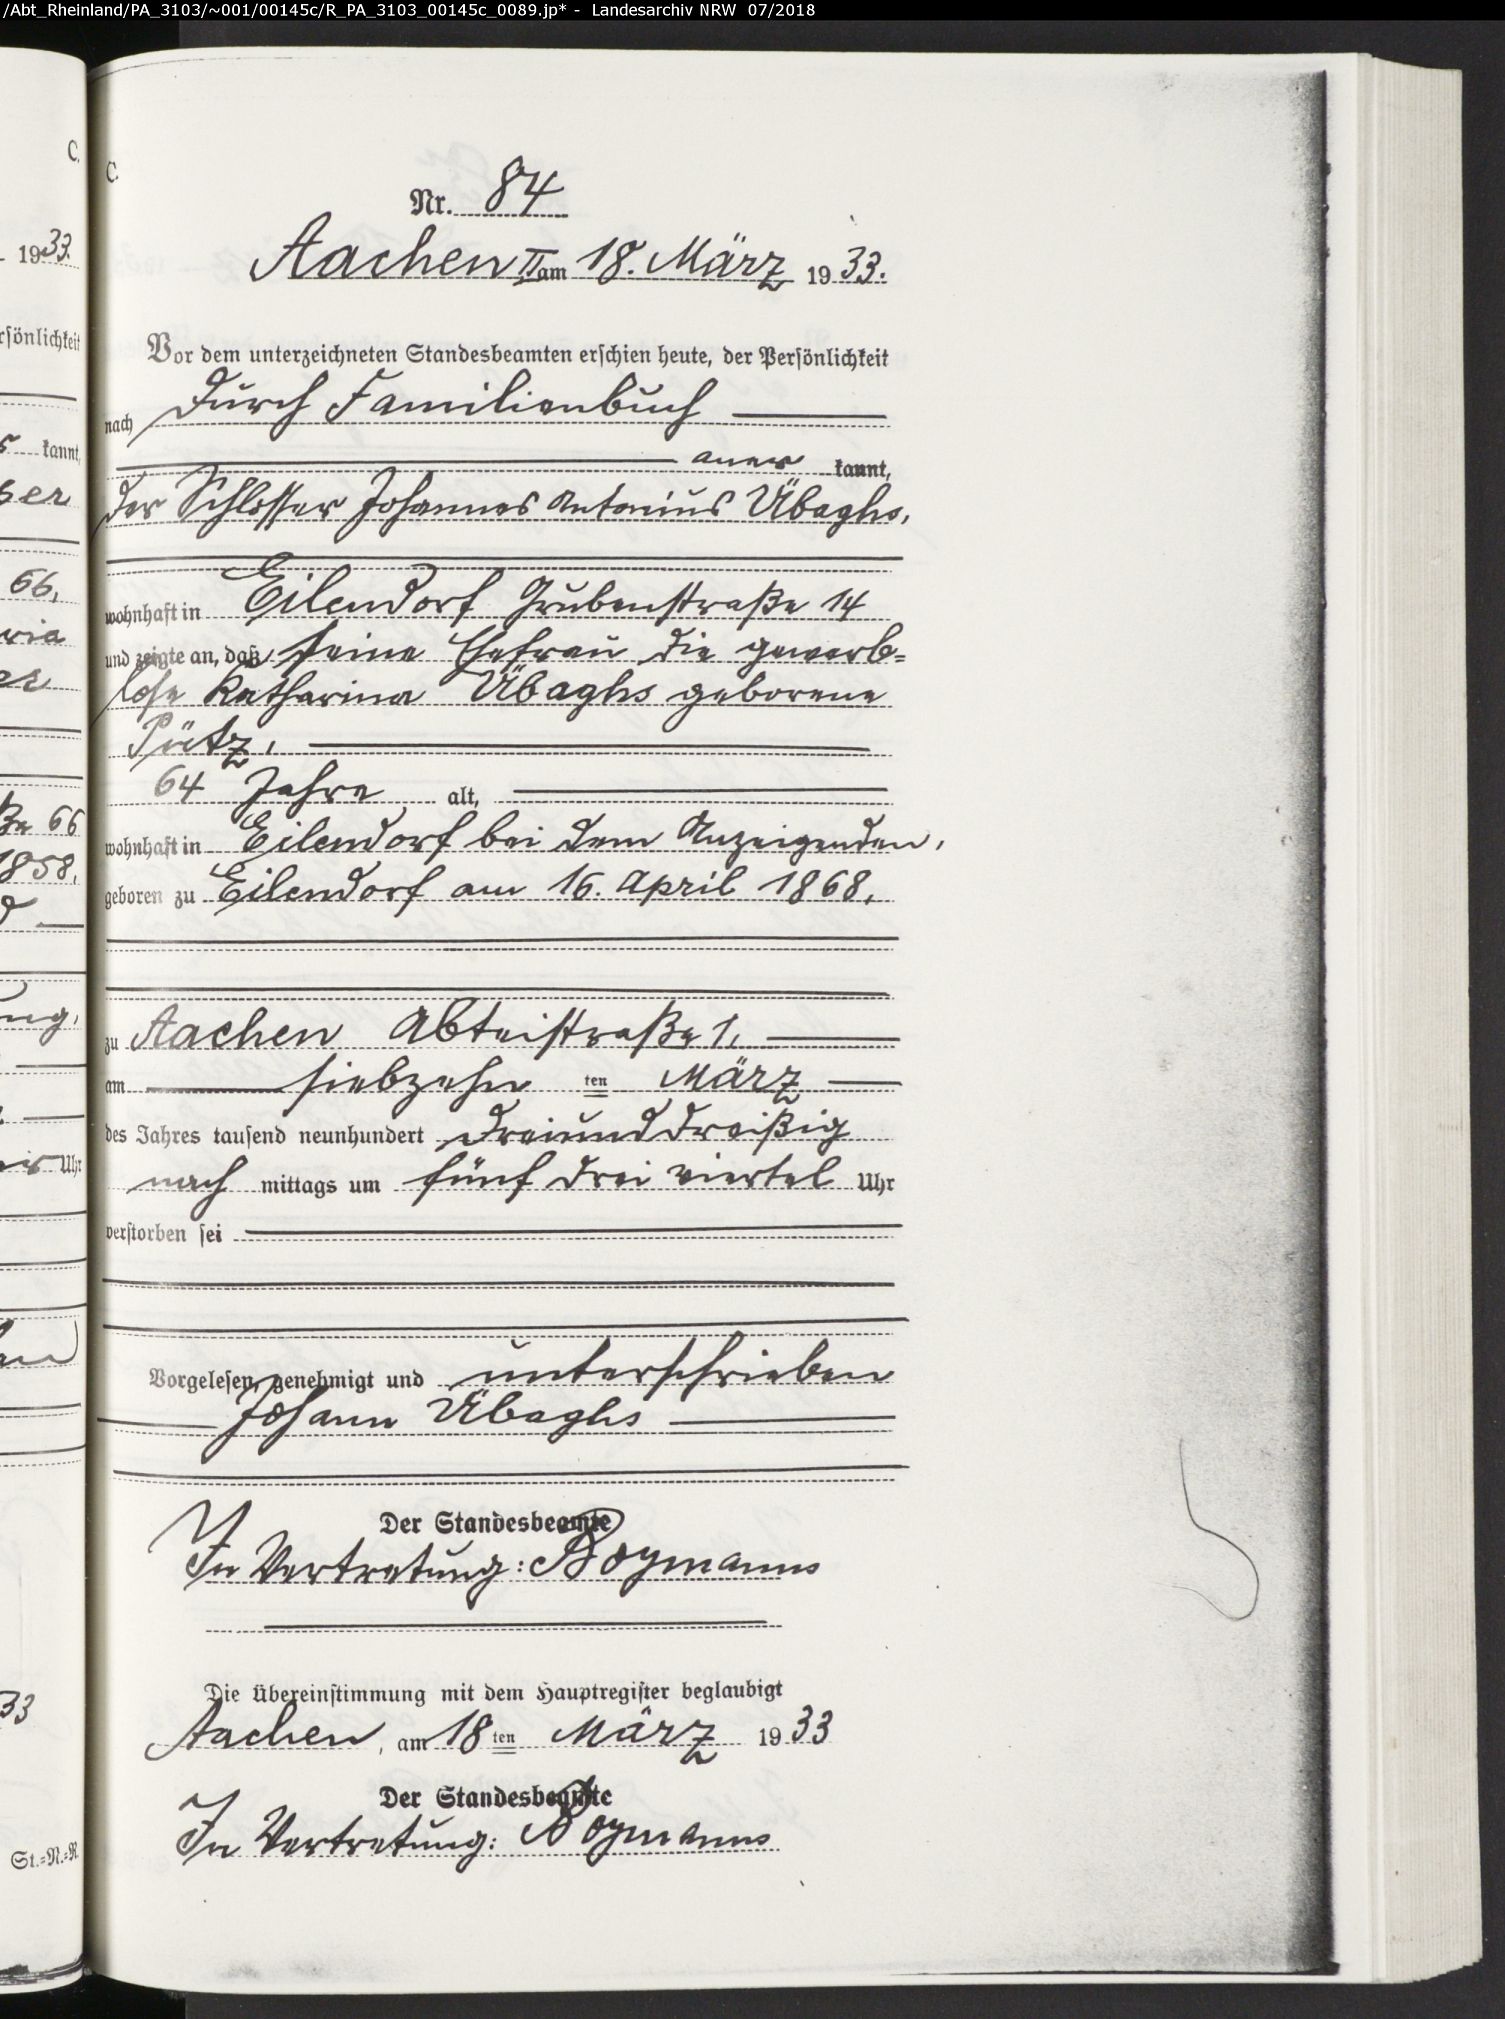 /Abt_Rheinland/PA_3103/~001/00145c/R_PA_3103_00145c_0089.jp* - Landesarchiv NRW 07/2018
C.
1933.
rsönlichkeit
kannt,
ser
66,
ria
er
ße 66
1858,
ung,
Uhr
33
St.=N.=R.
C.
Nr. 84
Aachen II am 18. März 1933.
Vor dem unterzeichneten Standesbeamten erschien heute, der Persönlichkeit
nach durch Familienbuch
aner kannt,
der Schlosser Johannes Antonius Übaghs,
wohnhaft in Eilendorf Grubenstraße 14
und zeigte an, daß seine Ehefrau die gewerb=
lose Katharina Übaghs geborene
Pütz,
64 Jahre alt,
wohnhaft in Eilendorf bei dem Anzeigenden,
geboren zu Eilendorf am 16. April 1868,
zu Aachen Abteistraße 1,
am siebzehn ten März
des Jahres tausend neunhundert dreiunddreißig
nach mittags um fünf drei viertel Uhr
verstorben sei
Vorgelesen, genehmigt und unterschrieben
Johann Übaghs
Der Standesbeamte
In Vertretung: Boymanns
Die Übereinstimmung mit dem Hauptregister beglaubigt
Aachen, am 18 ten März 1933
Der Standesbeamte
In Vertretung: Boymanns